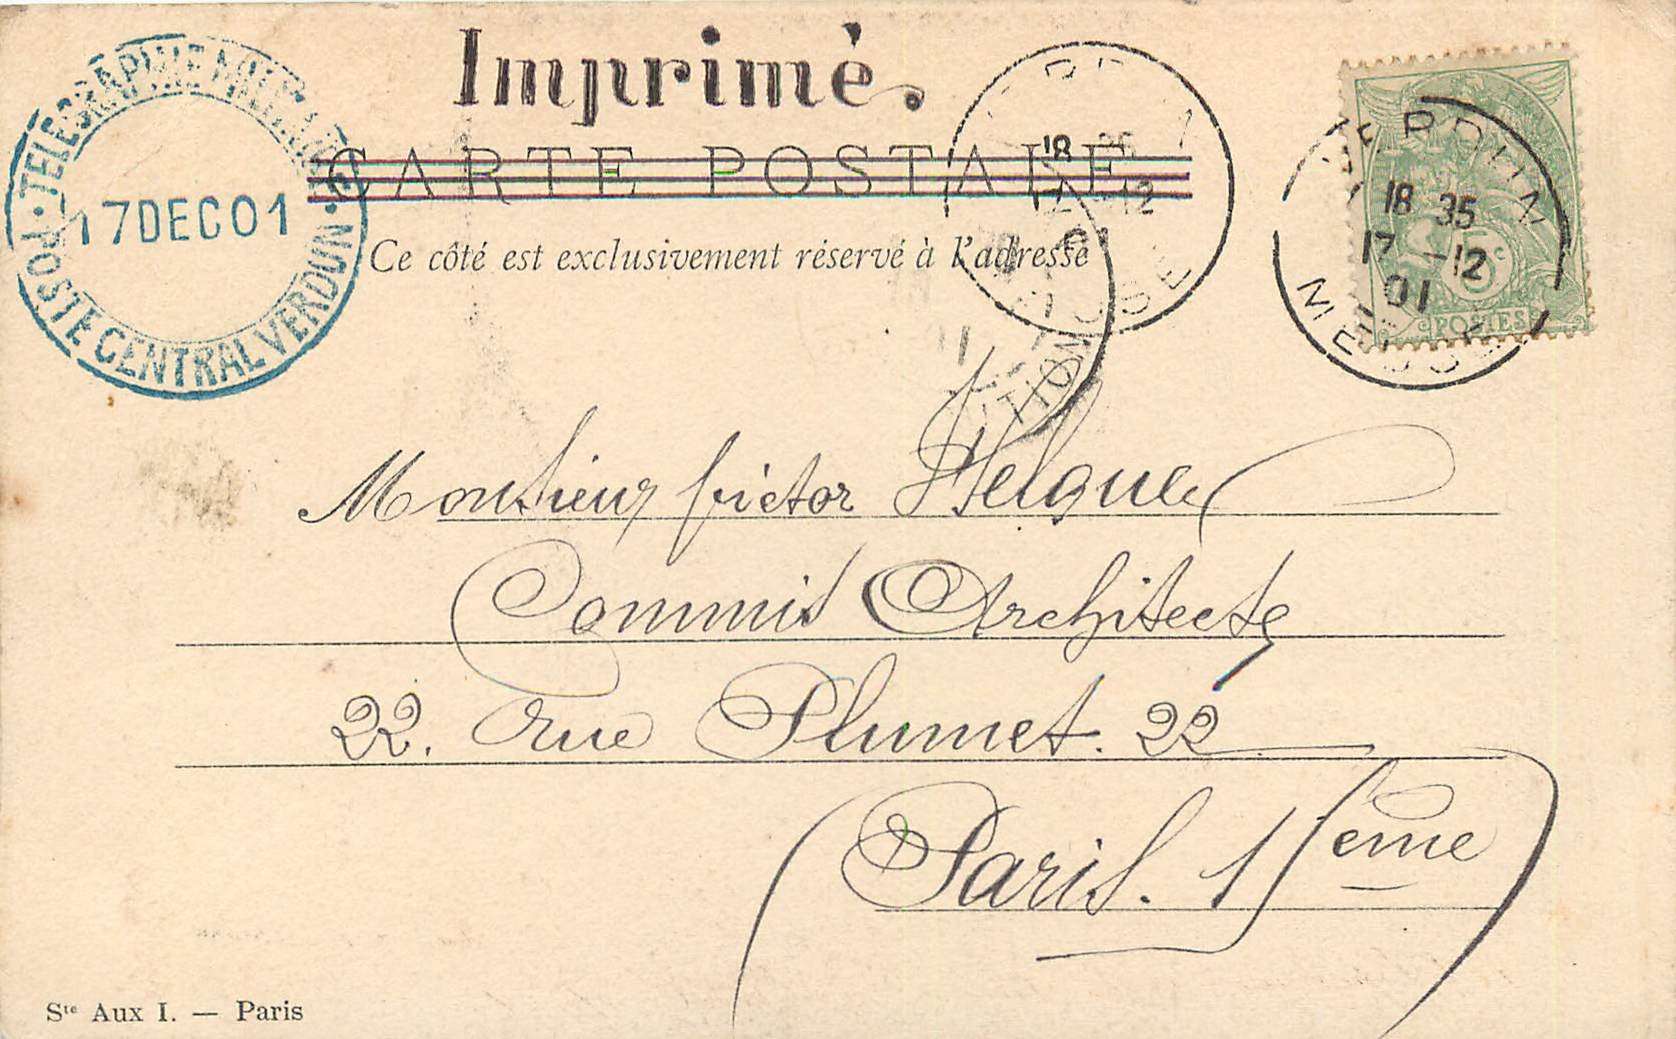 Imprimé.
TELEGRAPHIE MILITAIRE
17DEC01
POSTE CENTRAL VERDUN
CARTE POSTALE
Ce côté est exclusivement réservé à l'adresse
18 35
17 -12
MEUSE
VERDUN
18 35
17 -12
01
MEUSE
5c
POSTES
Monsieur Victor Helque
Commis Architecte
22. rue Plumet. 22
Paris. 15ème
Ste Aux I. — Paris